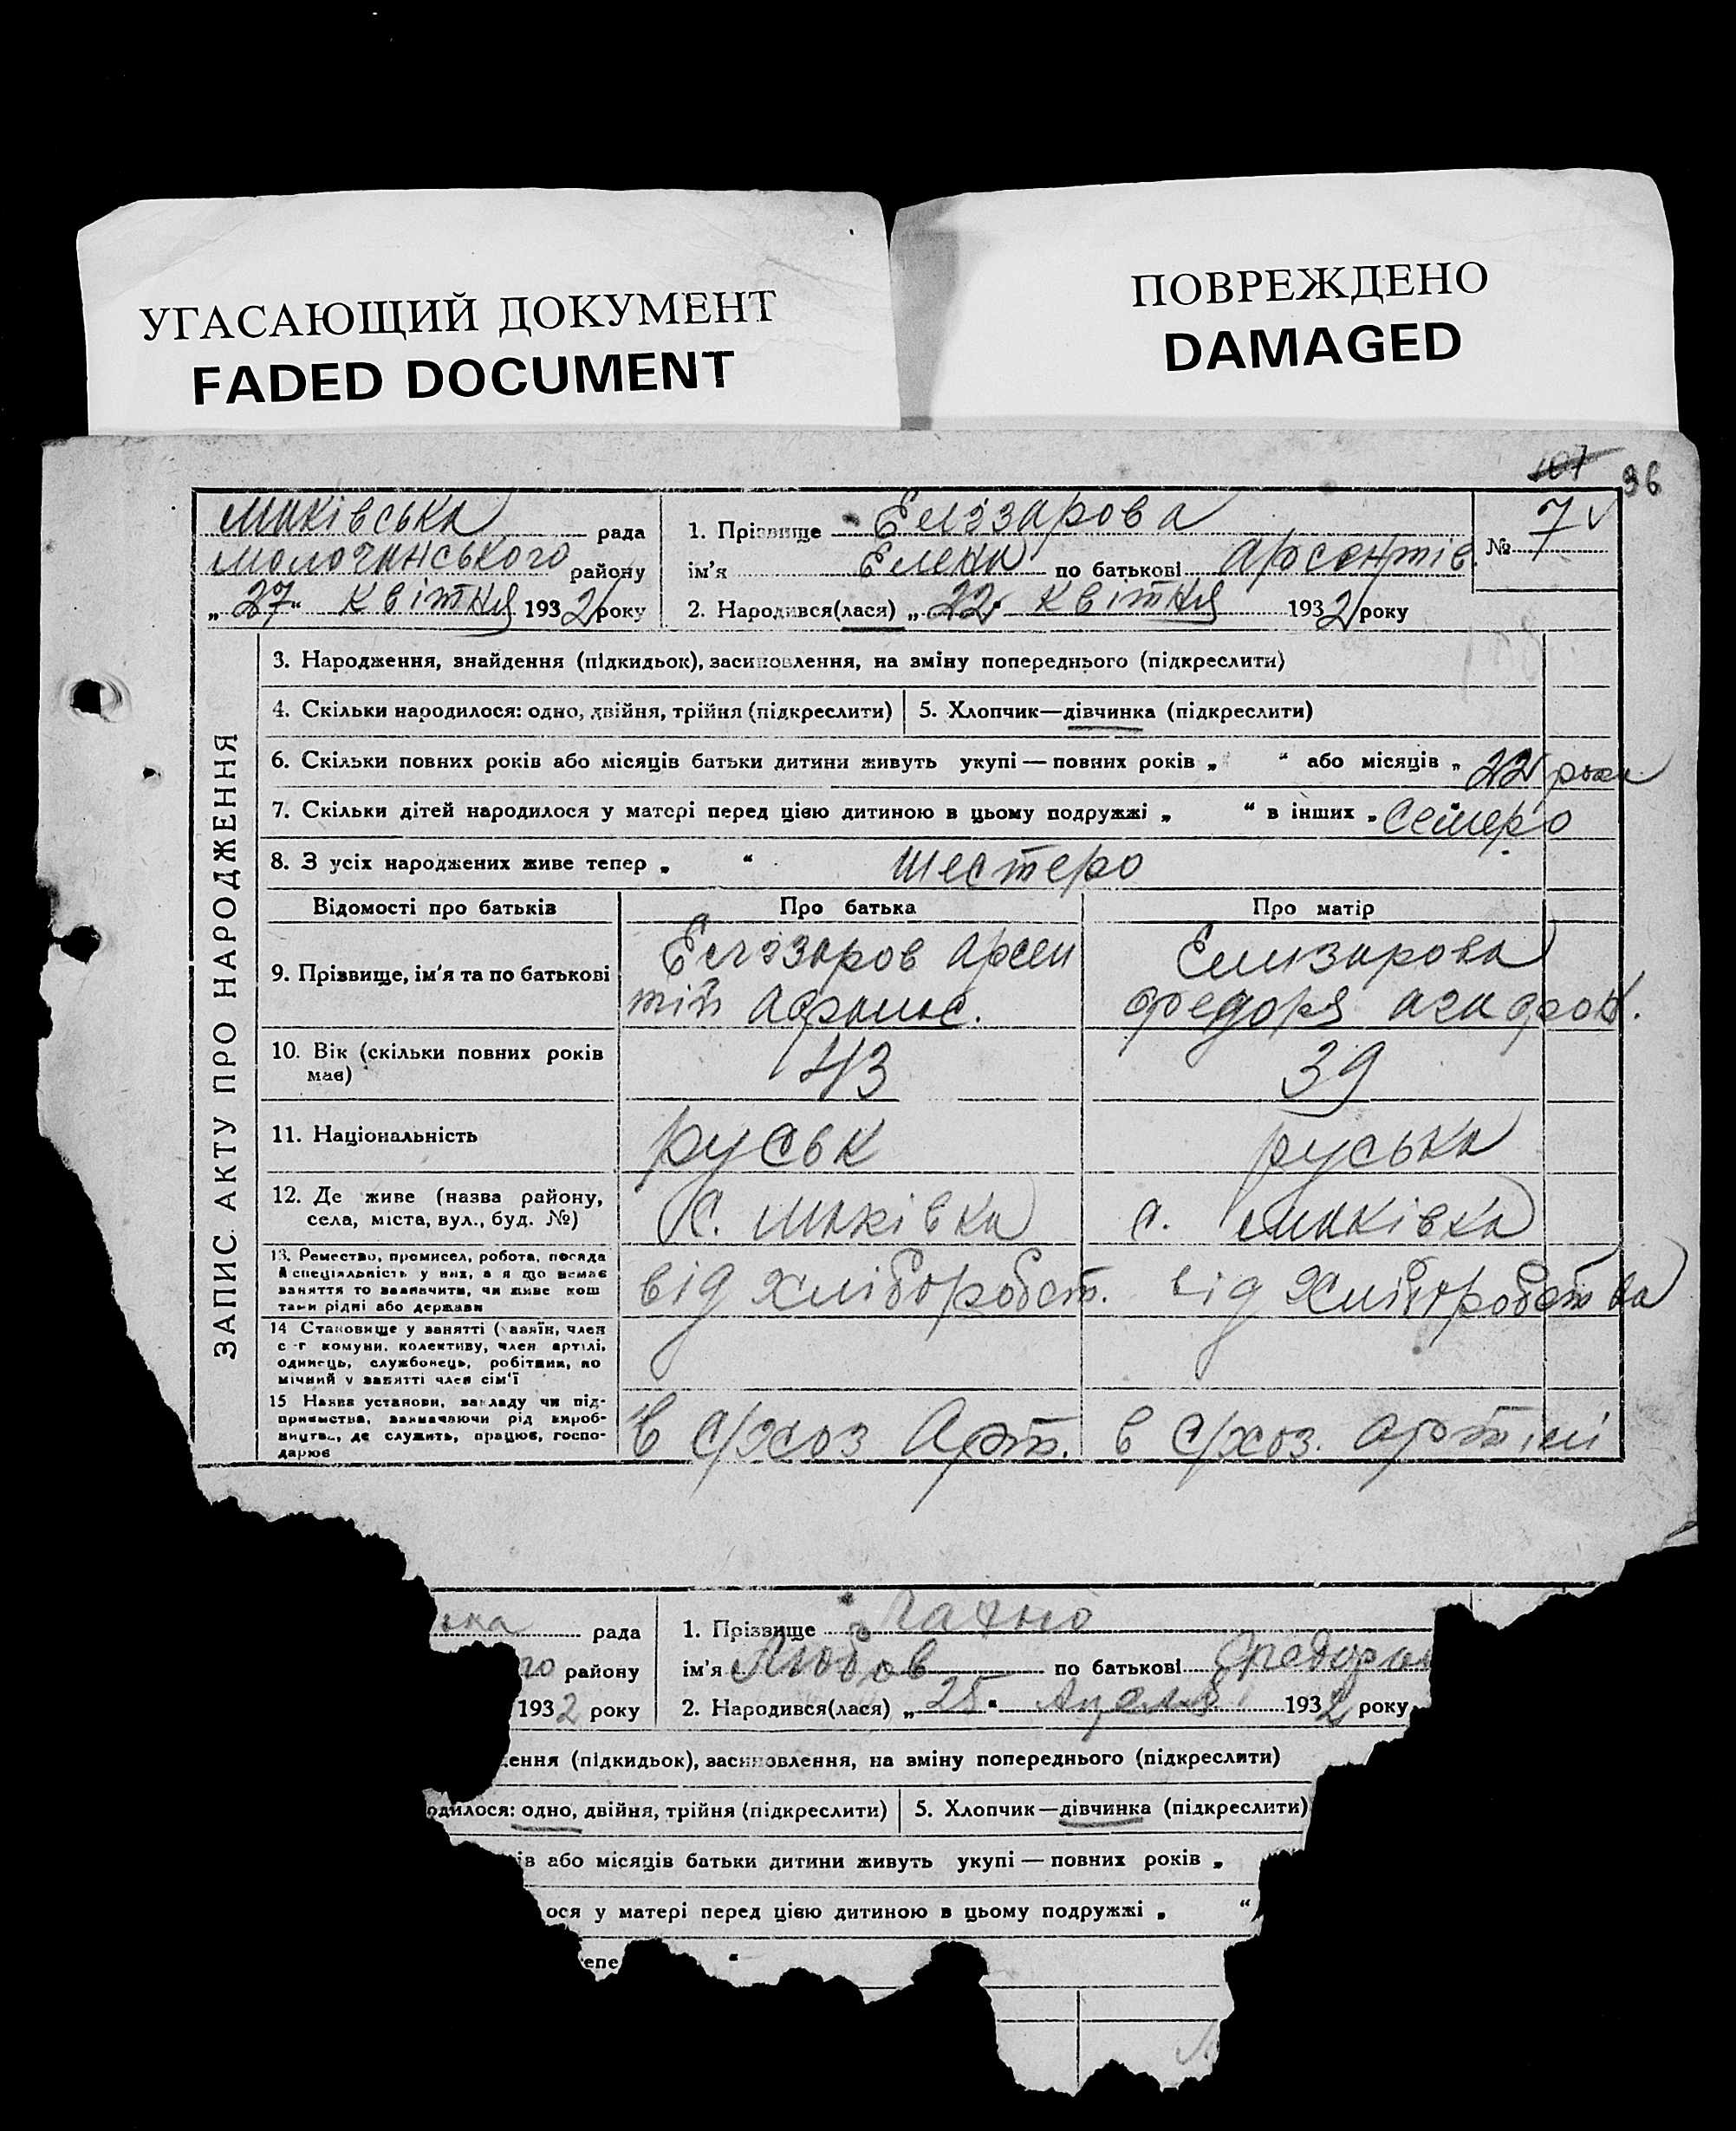 УГАСАЮЩИЙ ДОКУМЕНТ
FADED DOCUMENT
ПОВРЕЖДЕНО
DAMAGED
107 36
Маківська рада
Молочанського району
„27“ квітня 1932 року
1. Прізвище Елізарова
ім'я Елена по батькові Арсентів.
2. Народився(лася) „22“ квітня 1932 року
№ 7
ЗАПИС АКТУ ПРО НАРОДЖЕННЯ
3. Народження, знайдення (підкидьок), засиновлення, на зміну попереднього (підкреслити)
4. Скільки народилося: одно, двійня, трійня (підкреслити) 5. Хлопчик—дівчинка (підкреслити)
6. Скільки повних років або місяців батьки дитини живуть укупі — повних років „ “ або місяців „ 22 роки
7. Скільки дітей народилося у матері перед цією дитиною в цьому подружжі „ “ в інших „ Семеро
8. З усіх народжених живе тепер „ “ шестеро
Відомості про батьків Про батька Про матір
9. Прізвище, ім'я та по батькові
Елізаров Арсен
тій Афанас.
Елизарова
Федоря Агафон.
10. Вік (скільки повних років має) 43 39
11. Національність руськ руська
12. Де живе (назва району, села, міста, вул., буд. №) с. Маківка с. Маківка
13. Ремество, промисел, робота, посада
й спеціяльність у них, а я що немає
заняття то зазначити, чи живе кош
тами рідні або держави
від хліборобст. від хліборобства
14 Становище у занятті (хазяїн, член
с-г комуни, колективу, член артілі,
одинець, службовець, робітник, по
мічний у занятті член сім'ї
15 Назва установи, закладу чи під-
приємства, зазначаючи рід вироб-
ництва, де служить, працює, госпо-
дарює
в с/хоз Арт. в с/хоз. артілі
ька рада
го району
1932 року
1. Прізвище
ім'я Любов по батькові Федоро
2. Народився(лася) „25“ 1932 року
ення (підкидьок), засиновлення, на зміну попереднього (підкреслити)
одилося: одно, двійня, трійня (підкреслити) 5. Хлопчик—дівчинка (підкреслити)
ів або місяців батьки дитини живуть укупі — повних років „
ося у матері перед цією дитиною в цьому подружжі „ “
епе “